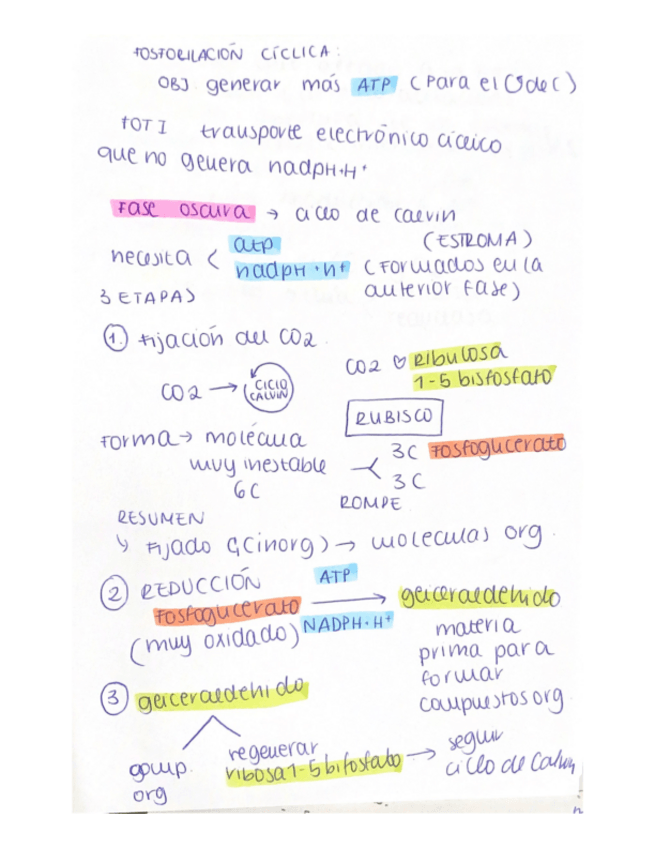 FOSFORILACIÓN CÍCLICA:
OBJ. generar más ATP (para el C de C)
FOT I transporte electrónico cíclico
que no genera nadpH·H+
FASE OSCURA → ciclo de calvin
(ESTROMA)
necesita < atp
nadpH·H+ (Formados en la
anterior fase)
3 ETAPAS
1. Fijación del CO2
CO2 → CICLO CALVIN
CO2 RIBULOSA
1-5 bisfosfato
RUBISCO
FORMA → molécula
muy inestable
6C
3C FOSFOGLICERATO
3C
ROMPE
RESUMEN
↳ Fijado C(inorg) → moleculas org.
2 REDUCCIÓN
FOSFOGLICERATO
(muy oxidado)
ATP
NADPH·H+
gliceraldehido
materia
prima para
formar
compuestos org.
3 gliceraldehido
comp.
org
regenerar
ribosa 1-5 bifosfato → seguir
ciclo de Calvin